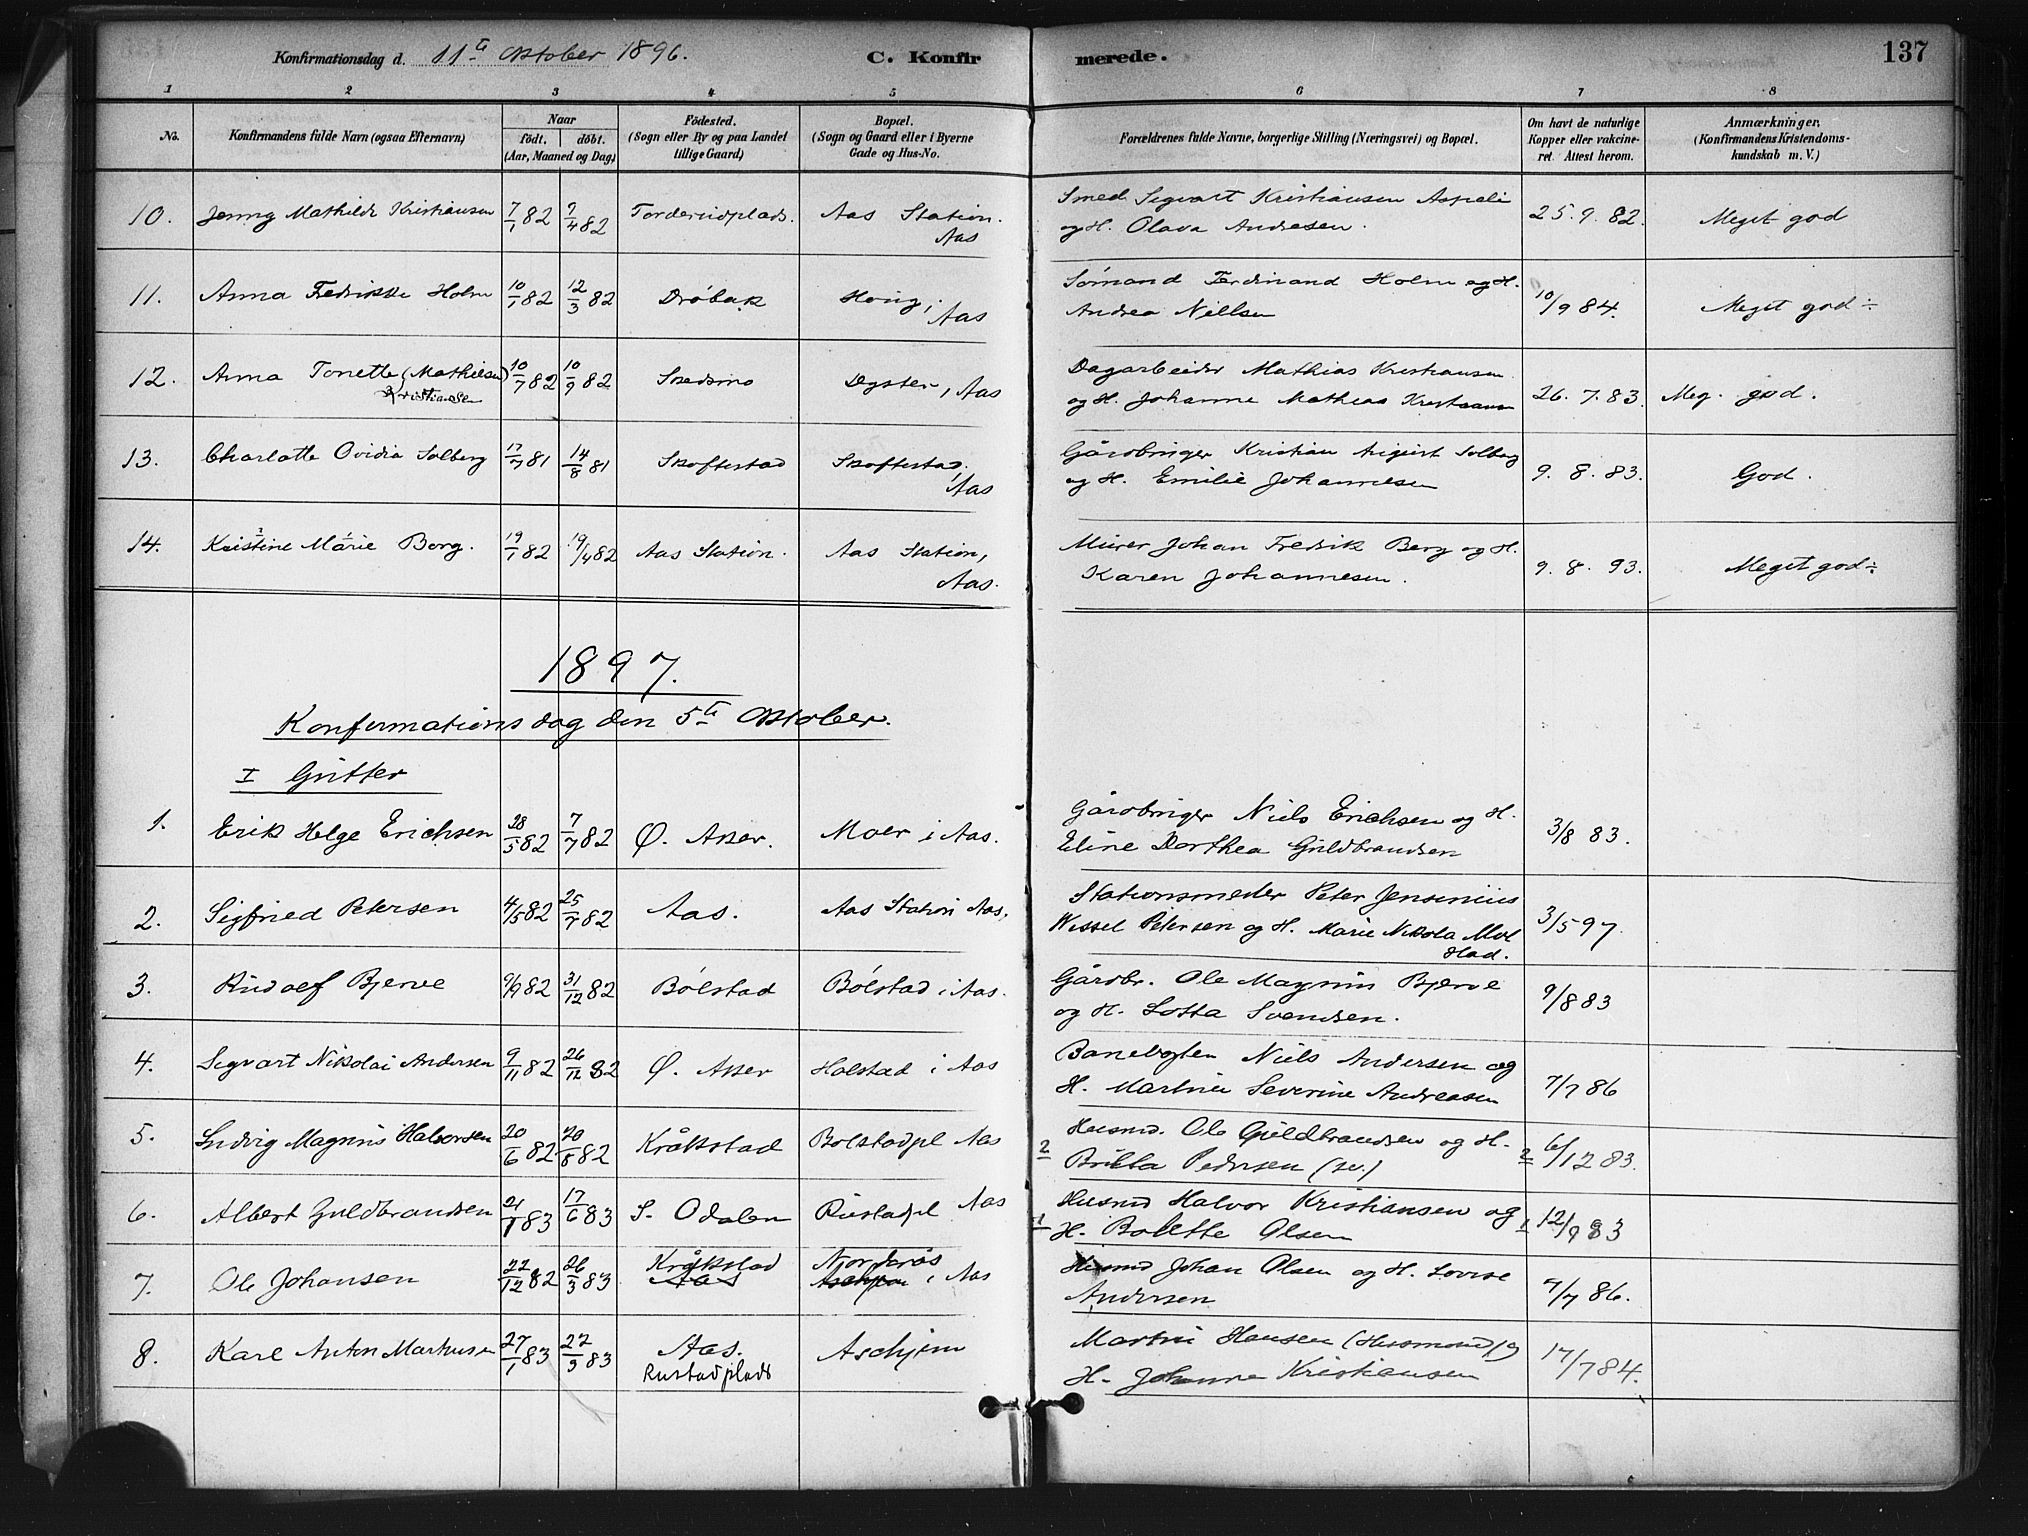 Konfirmationsdag d. 11te Oktober 1896. C. Konfirmerede. 137
1 2 3 4 5 6 7 8
No. Konfirmandens fulde Navn (ogsaa Efternavn) Naar født. døbt. (Aar, Maaned og Dag) Fødested. (Sogn eller By og paa Landet tillige Gaard) Bopæl. (Sogn og Gaard eller i Byerne Gade og Hus-No. Forældrenes fulde Navne, borgerlige Stilling (Næringsvei) og Bopæl. Om havt de naturlige Kopper eller vakcineret. Attest herom. Anmærkninger. (Konfirmandens Kristendomskundskab m. V.)
10. Jenny Mathilde Kristiansen 7/1 82 9/4 82 Torderudplads. Aas Station. Aas Smed Segvart Kristiansen Aspeli og H. Olava Andresen. 25. 9. 82. Meget god
11. Anna Fredrikke Holm 10/1 82 12/3 82 Drøbak Houg, Aas Sømand Ferdinand Holm og H. Andrea Nielsen 10/9 84. Meget god ÷
12. Anna Tonette (Mathiesen) Kristiansen 10/7 82 10/9 82 Skedsmo Dyster, Aas Dagarbeider Mathias Kristiansen og H. Johanne Mathea Kristiansen 26. 7. 83. Meg. god.
13. Charlotte Ovidia Solberg 17/7 81 14/8 81 Skoftestad Skoftestad, Aas Gårdbruger Kristian August Solberg og H. Emilie Johannesen 9. 8. 83. God.
14. Kristine Marie Berg. 19/1 82 19/4 82 Aas Station. Aas Station, Aas. Murer Johan Fredrik Berg og H. Karen Johannesen. 9. 8. 93. Meget god ÷
1897.
Konfirmationsdag den 5te Oktober.
I Gutter
1. Erik Helge Erichsen 28/5 82 7/7 82 Ø. Aker. Moer i Aas. Gårdbruger Niels Erichsen og H. Eline Dorthea Guldbrandsen 3/8 83.
2. Sigfried Petersen 4/5 82 25/7 82 Aas. Aas Station Aas. Stationsmester Peter Jensenius Wessel Petersen og H. Marie Nikola Molstad. 3/5 97.
3. Rudolf Bjerve 9/9 82 31/12 82 Bølstad Bølstad i Aas. Gårdbr. Ole Magnus Bjerve og H. Lotta Svendsen. 9/8 83
4. Segvart Nikolai Andersen 9/11 82 26/12 82 Ø. Aker Holstad i Aas Banevogten Niels Andersen og H. Martine Severine Andreasen 7/7 86
5. Ludvig Magnus Halvorsen 20/6 82 20/8 82 Kråkstad Bolstadpl Aas 2 Husmd. Ole Guldbrandsen og H. Britta Pedersen (sv.) 2 6/12 83.
6. Albert Guldbrandsen 21/1 83 17/6 83 S. Odalen Rustadpl Aas 1 Husmd Halvor Kristiansen og H. Bolette Olsen 1 12/9 83
7. Ole Johansen 22/12 82 26/3 83 Kråkstad Aas Norderås i Aas Husmd Johan Olsen og H. Lovise Andersen 7/7 86.
8. Karl Anton Martinsen 27/1 83 22/3 83 Aas. Rustadplads Aschjem Martin Hansen (Husmand) og H. Johanne Kristiansen 17/7 84.